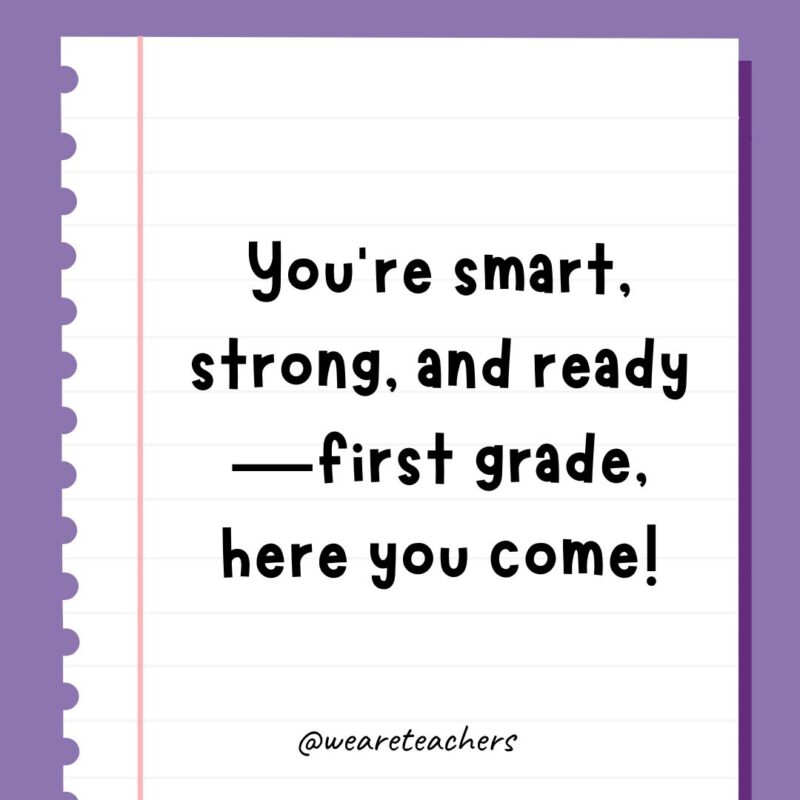 You're smart,
strong, and ready
—first grade,
here you come!
@weareteachers